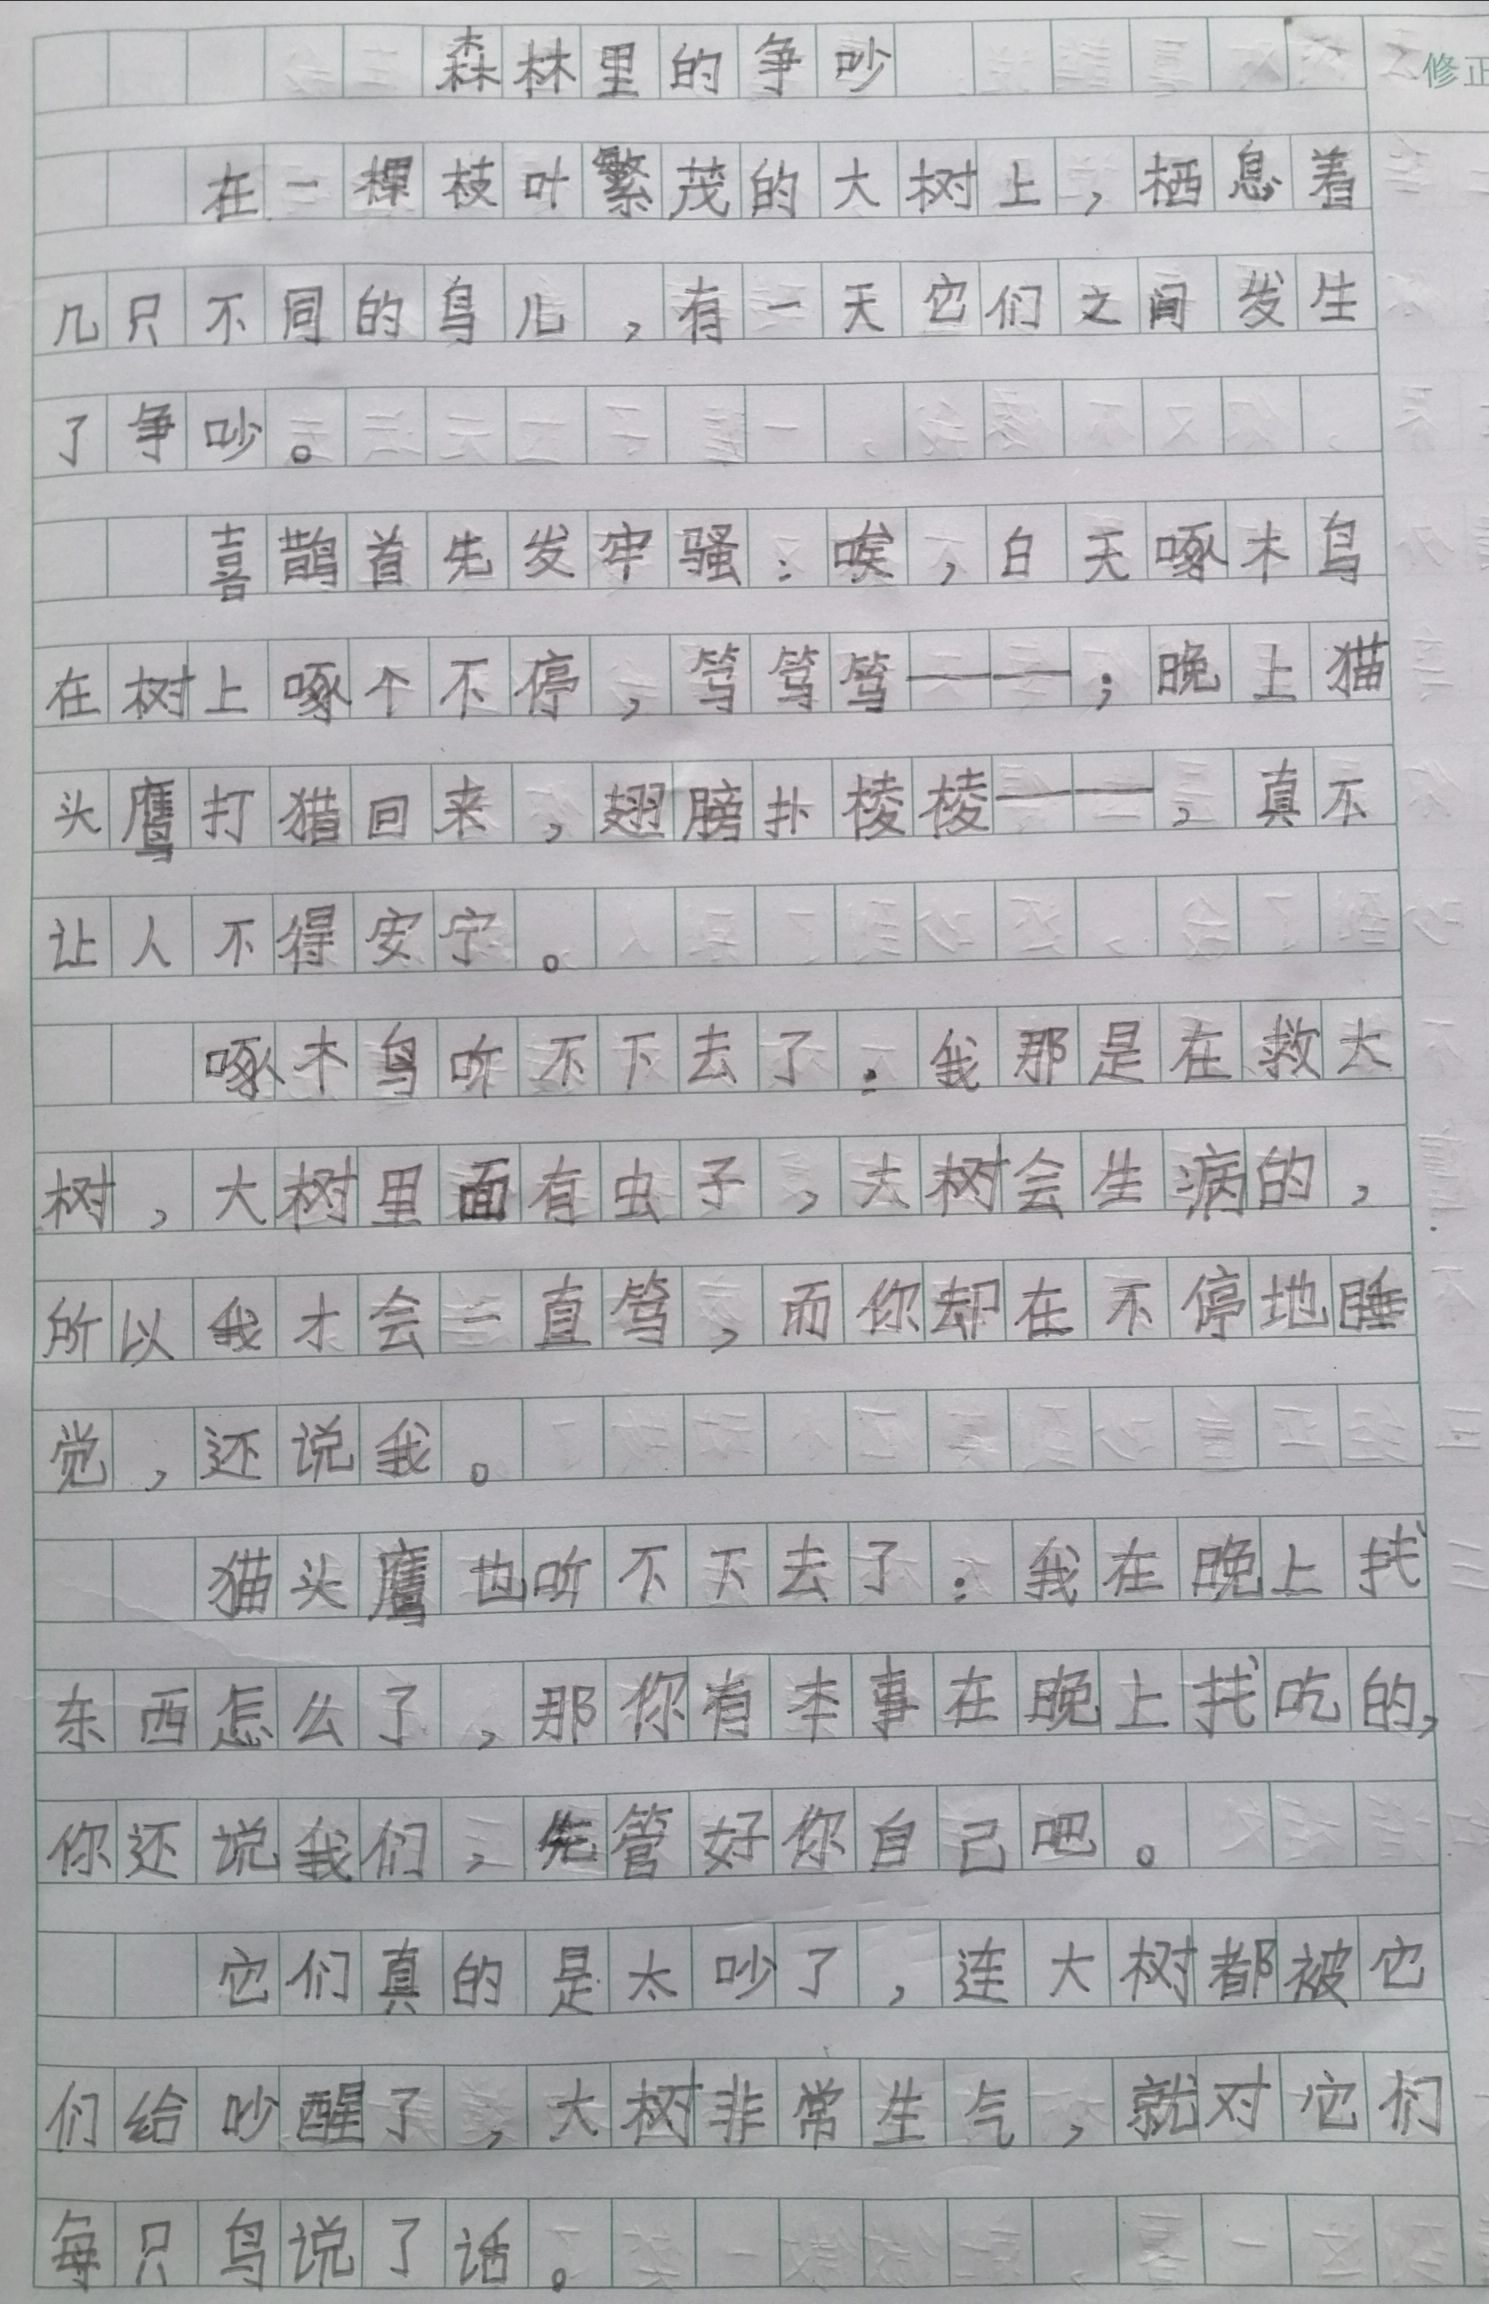 森林里的争吵
修正
在一棵枝叶繁茂的大树上，栖息着
几只不同的鸟儿，有一天它们之间发生
了争吵。
喜鹊首先发牢骚：唉，白天啄木鸟
在树上啄个不停，笃笃笃——；晚上猫
头鹰打猎回来，翅膀扑棱棱——，真不
让人不得安宁。
啄木鸟听不下去了：我那是在救大
树，大树里面有虫子，大树会生病的，
所以我才会一直笃，而你却在不停地睡
觉，还说我。
猫头鹰也听不下去了：我在晚上找
东西怎么了，那你有本事在晚上找吃的，
你还说我们，先管好你自己吧。
它们真的是太吵了，连大树都被它
们给吵醒了，大树非常生气，就对它们
每只鸟说了话。